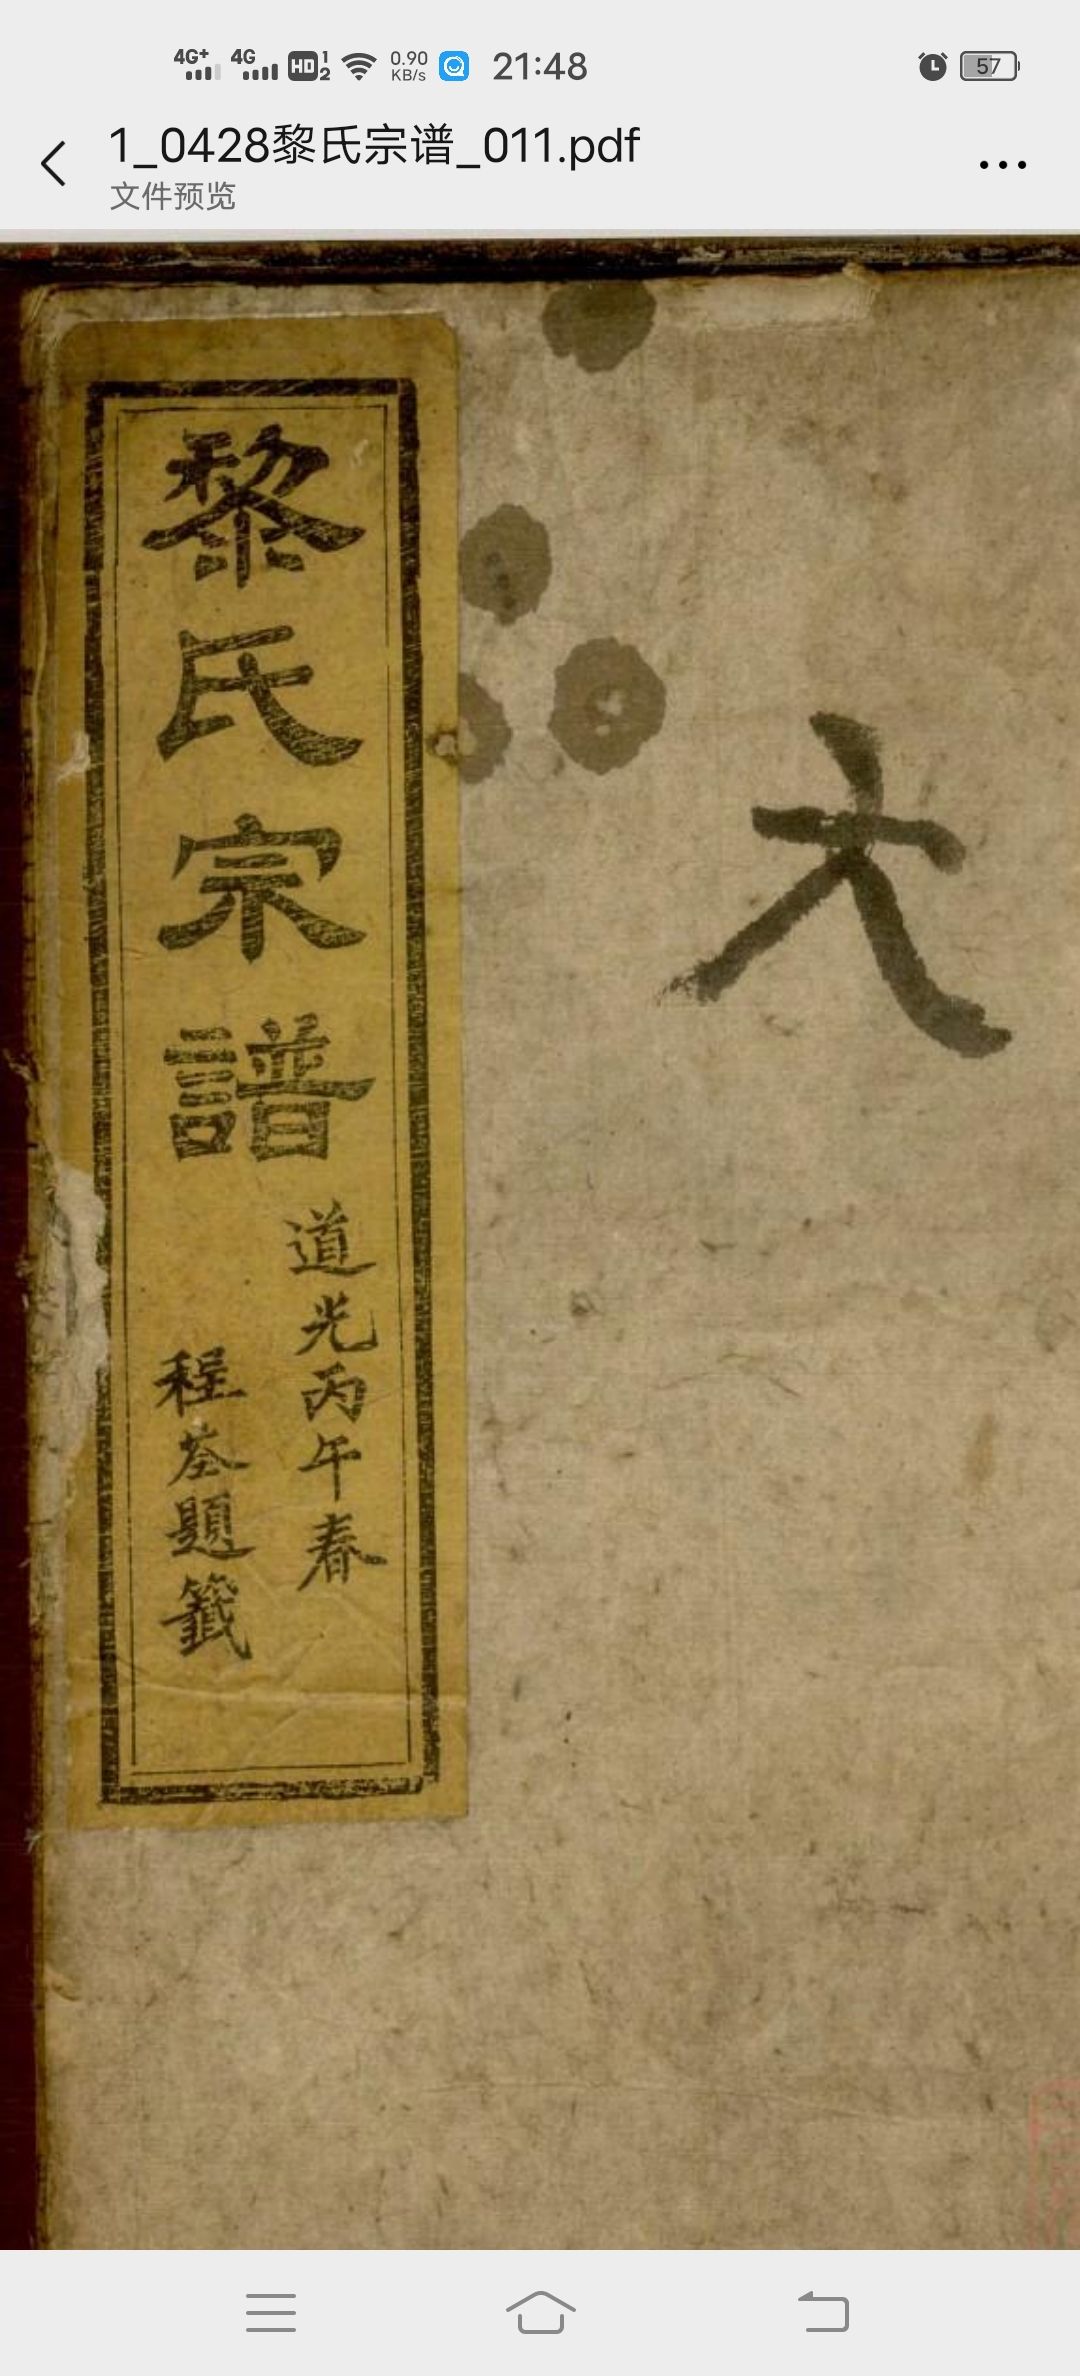 4G+ 4G HD 1 2 0.90 KB/s 21:48 57
1_0428黎氏宗谱_011.pdf
文件预览
黎氏宗譜
道光丙午春
程荃題籤
大